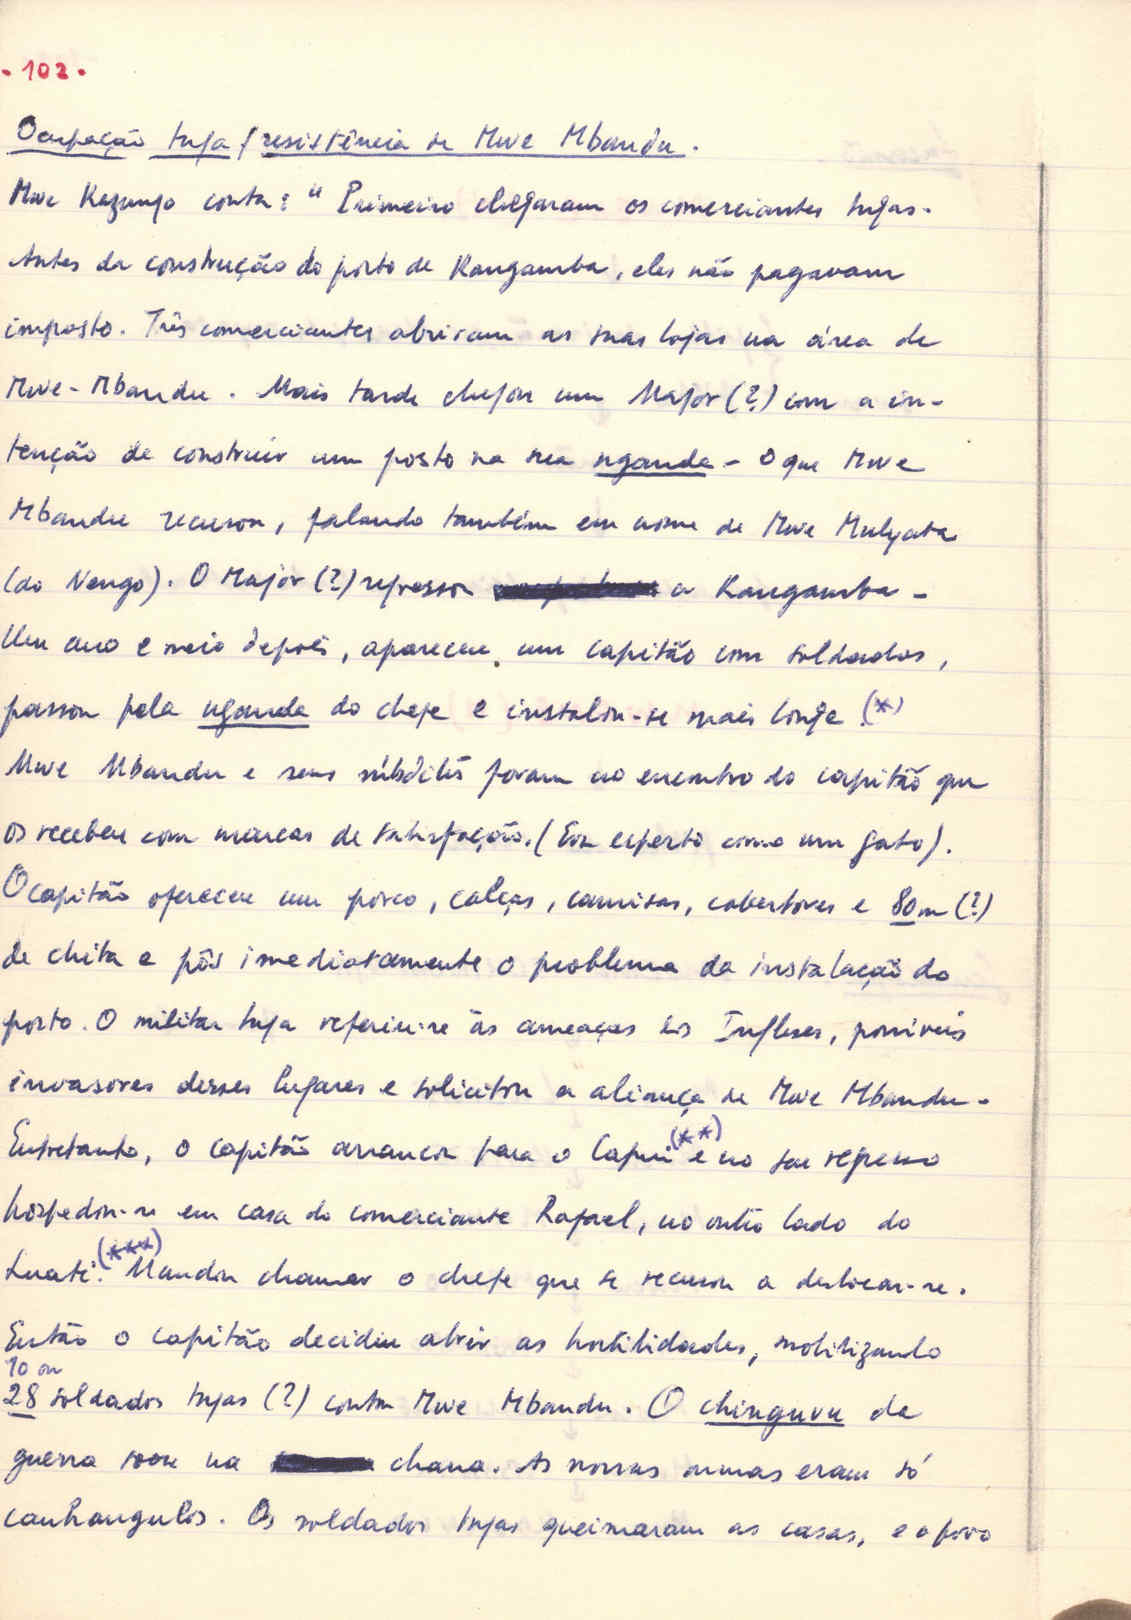 . 102 .
Ocupação tuga / resistência de Mwe Mbandu.
Mwe Kazungo conta: " Primeiro chegaram os comerciantes tugas.
Antes da construção do posto de Kangamba, eles não pagavam
imposto. Três comerciantes abriram as suas lojas na área de
Mwe-Mbandu. Mais tarde chegou um Major (?) com a in-
tenção de construir um posto na sua nganda - o que Mwe
Mbandu recusou, falando também em nome de Mwe Mulyata
(do Nengo). O Major (?) regressou a Kangamba -
Um ano e meio depois, apareceu um capitão com soldados,
passou pela nganda do chefe e instalou-se mais longe. (*)
Mwe Mbandu e seus súbditos foram ao encontro do capitão que
os recebeu com marcas de satisfação. (Era esperto como um gato).
O capitão ofereceu um porco, calças, camisas, cobertores e 80 m (?)
de chita e pôs imediatamente o problema da instalação do
posto. O militar tuga referiu-se às ameaças dos Ingleses, possíveis
invasores desses lugares e solicitou a aliança de Mwe Mbandu -
Entretanto, o capitão arrancou para o Capui (**) e no seu regresso
hospedou-se em casa do comerciante Rafael, no outro lado do
Luati. (***) Mandou chamar o chefe que se recusou a deslocar-se.
Então o capitão decidiu abrir as hostilidades, mobilizando
10 ou
28 soldados tugas (?) contra Mwe Mbandu. O chinguvu de
guerra soou na chana. As nossas armas eram só
canhangulos. Os soldados tugas queimaram as casas, e o povo